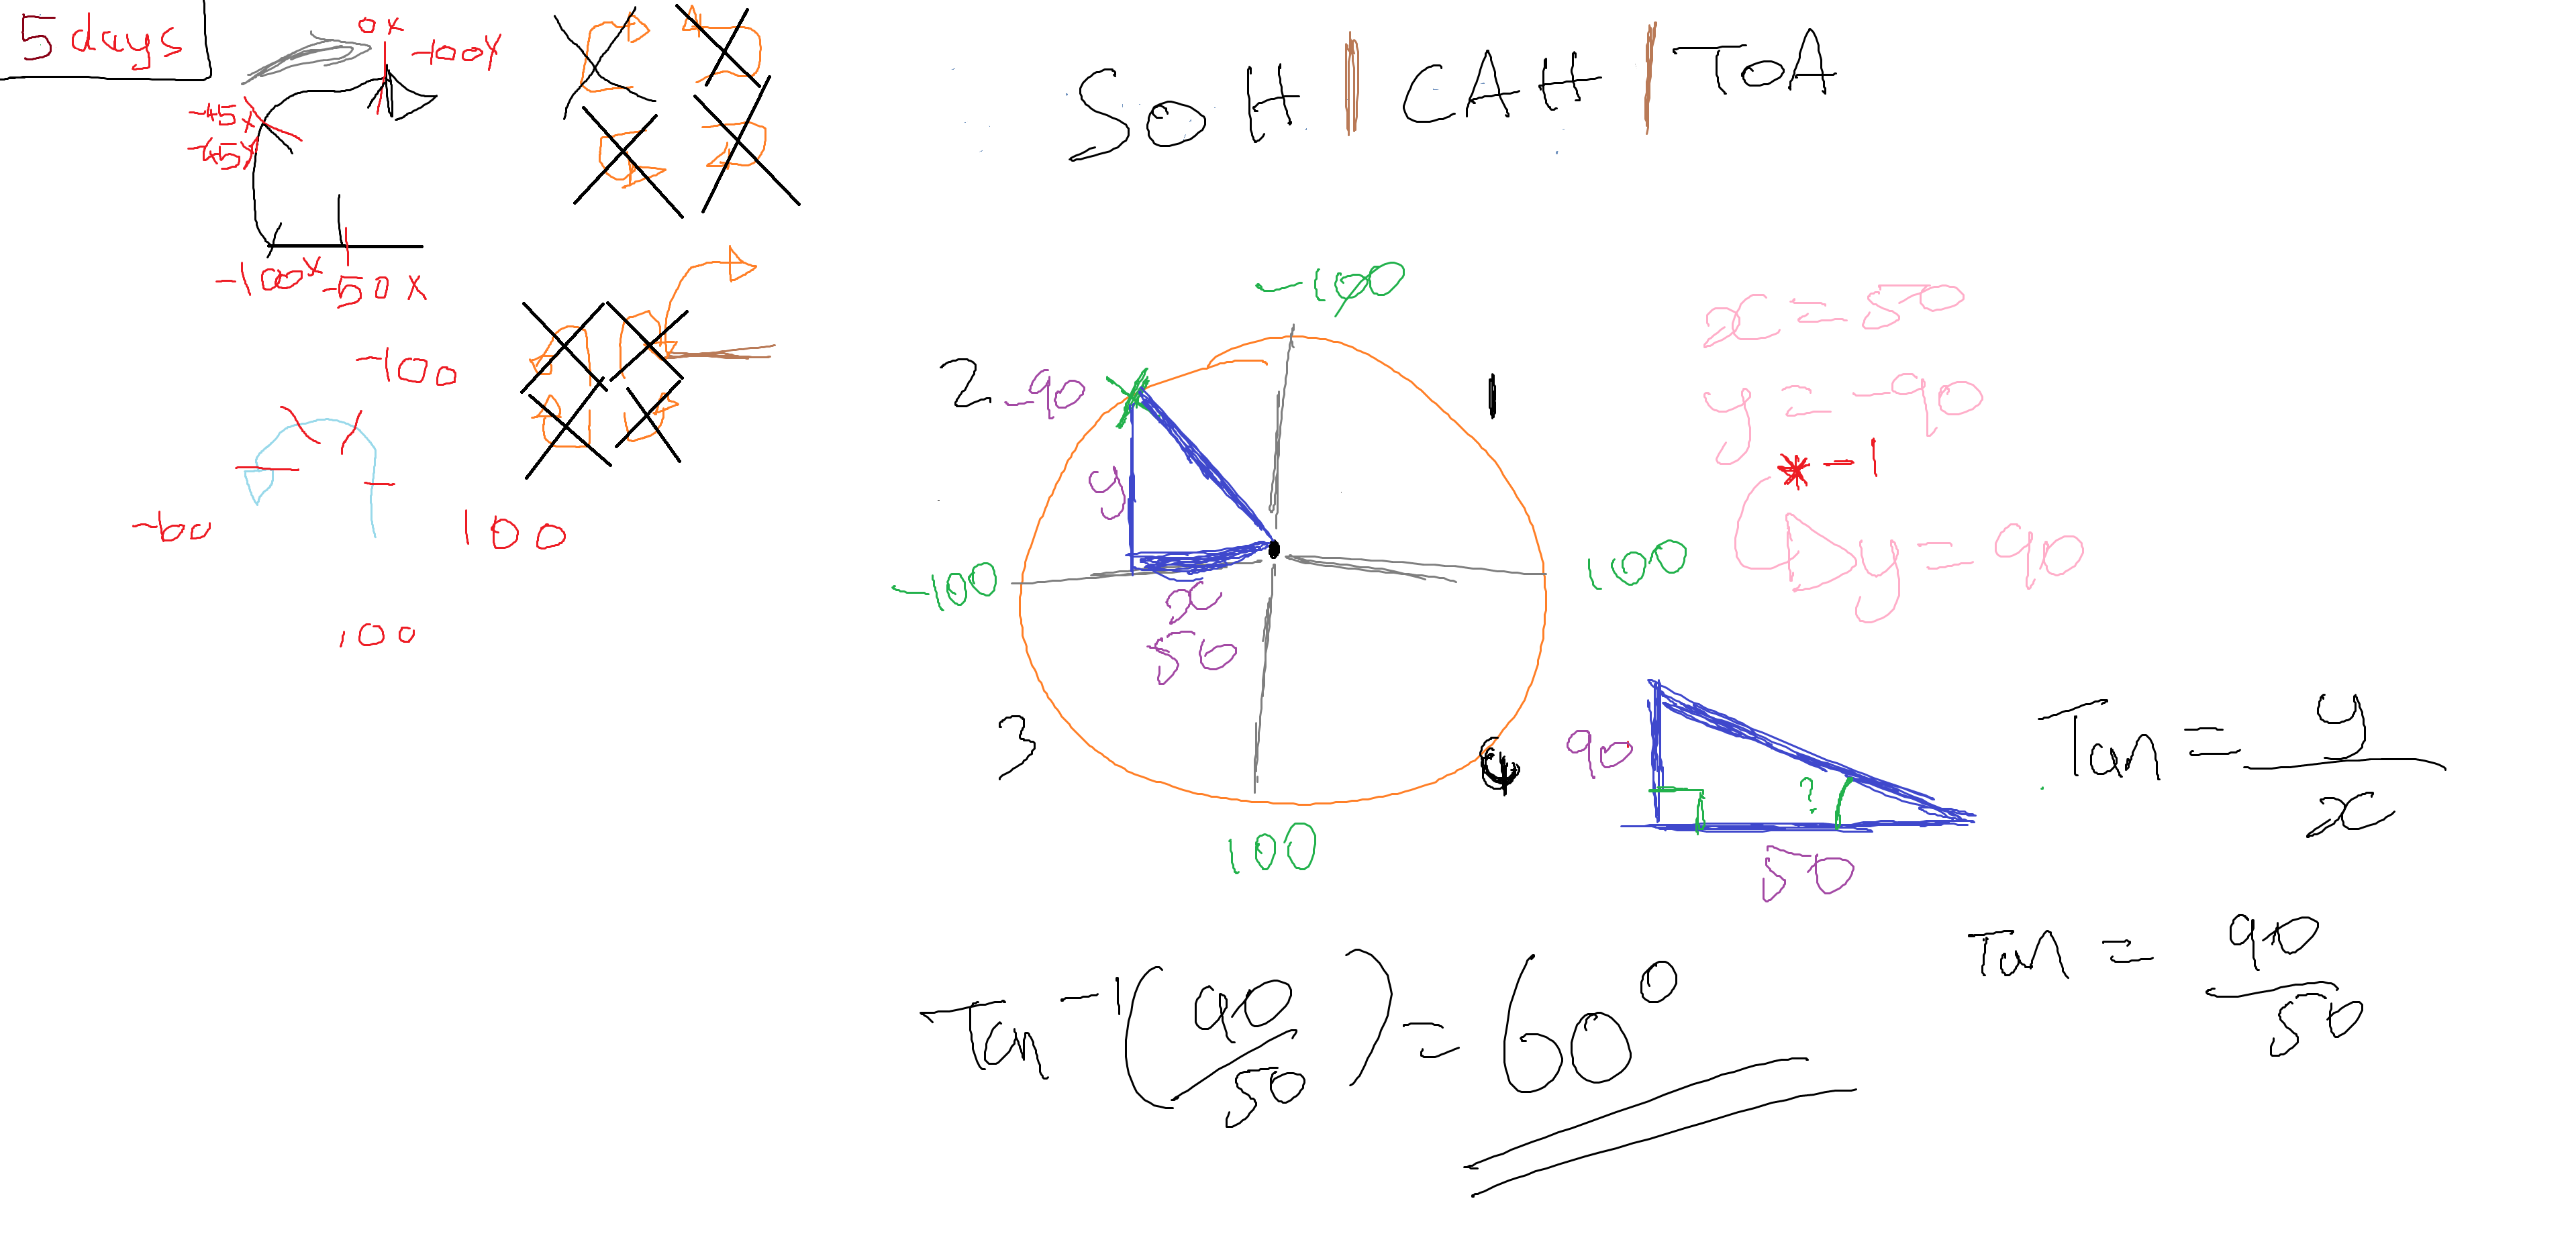 5 days
0x
-100y
-45x
-45y
-100x
-50x
-100
-60
100
100
SOH | CAH | TOA
-100
2
-90
1
y
-100
100
x
50
3
4
100
x = 50
y = -90
* -1
y = 90
90
?
50
Tan = y
x
Tan = 90
50
Tan -1 ( 90
50 ) = 60°